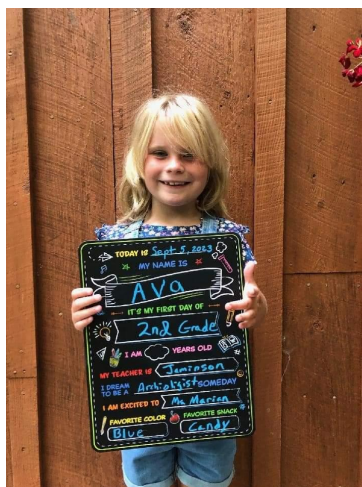 TODAY IS Sept 5, 2023
MY NAME IS
Ava
IT'S MY FIRST DAY OF
2nd Grade
I AM YEARS OLD
MY TEACHER IS Jeminson
I DREAM TO BE A Archioligist SOMEDAY
I AM EXCITED TO Me Marian
FAVORITE COLOR FAVORITE SNACK
Blue Candy